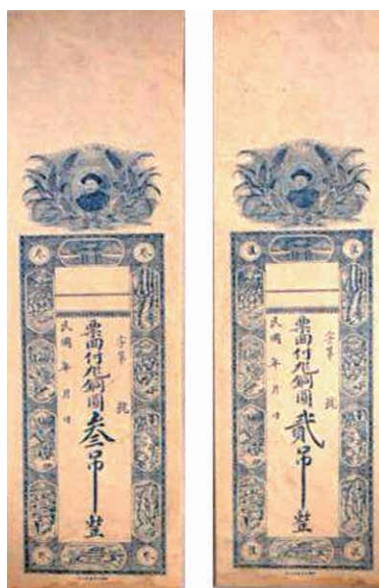 叁 叁
字第 號
票面付銅圓叁吊整
民國 年 月 日
叁 叁
貳 貳
字第 號
票面付銅圓貳吊整
民國 年 月 日
貳 貳